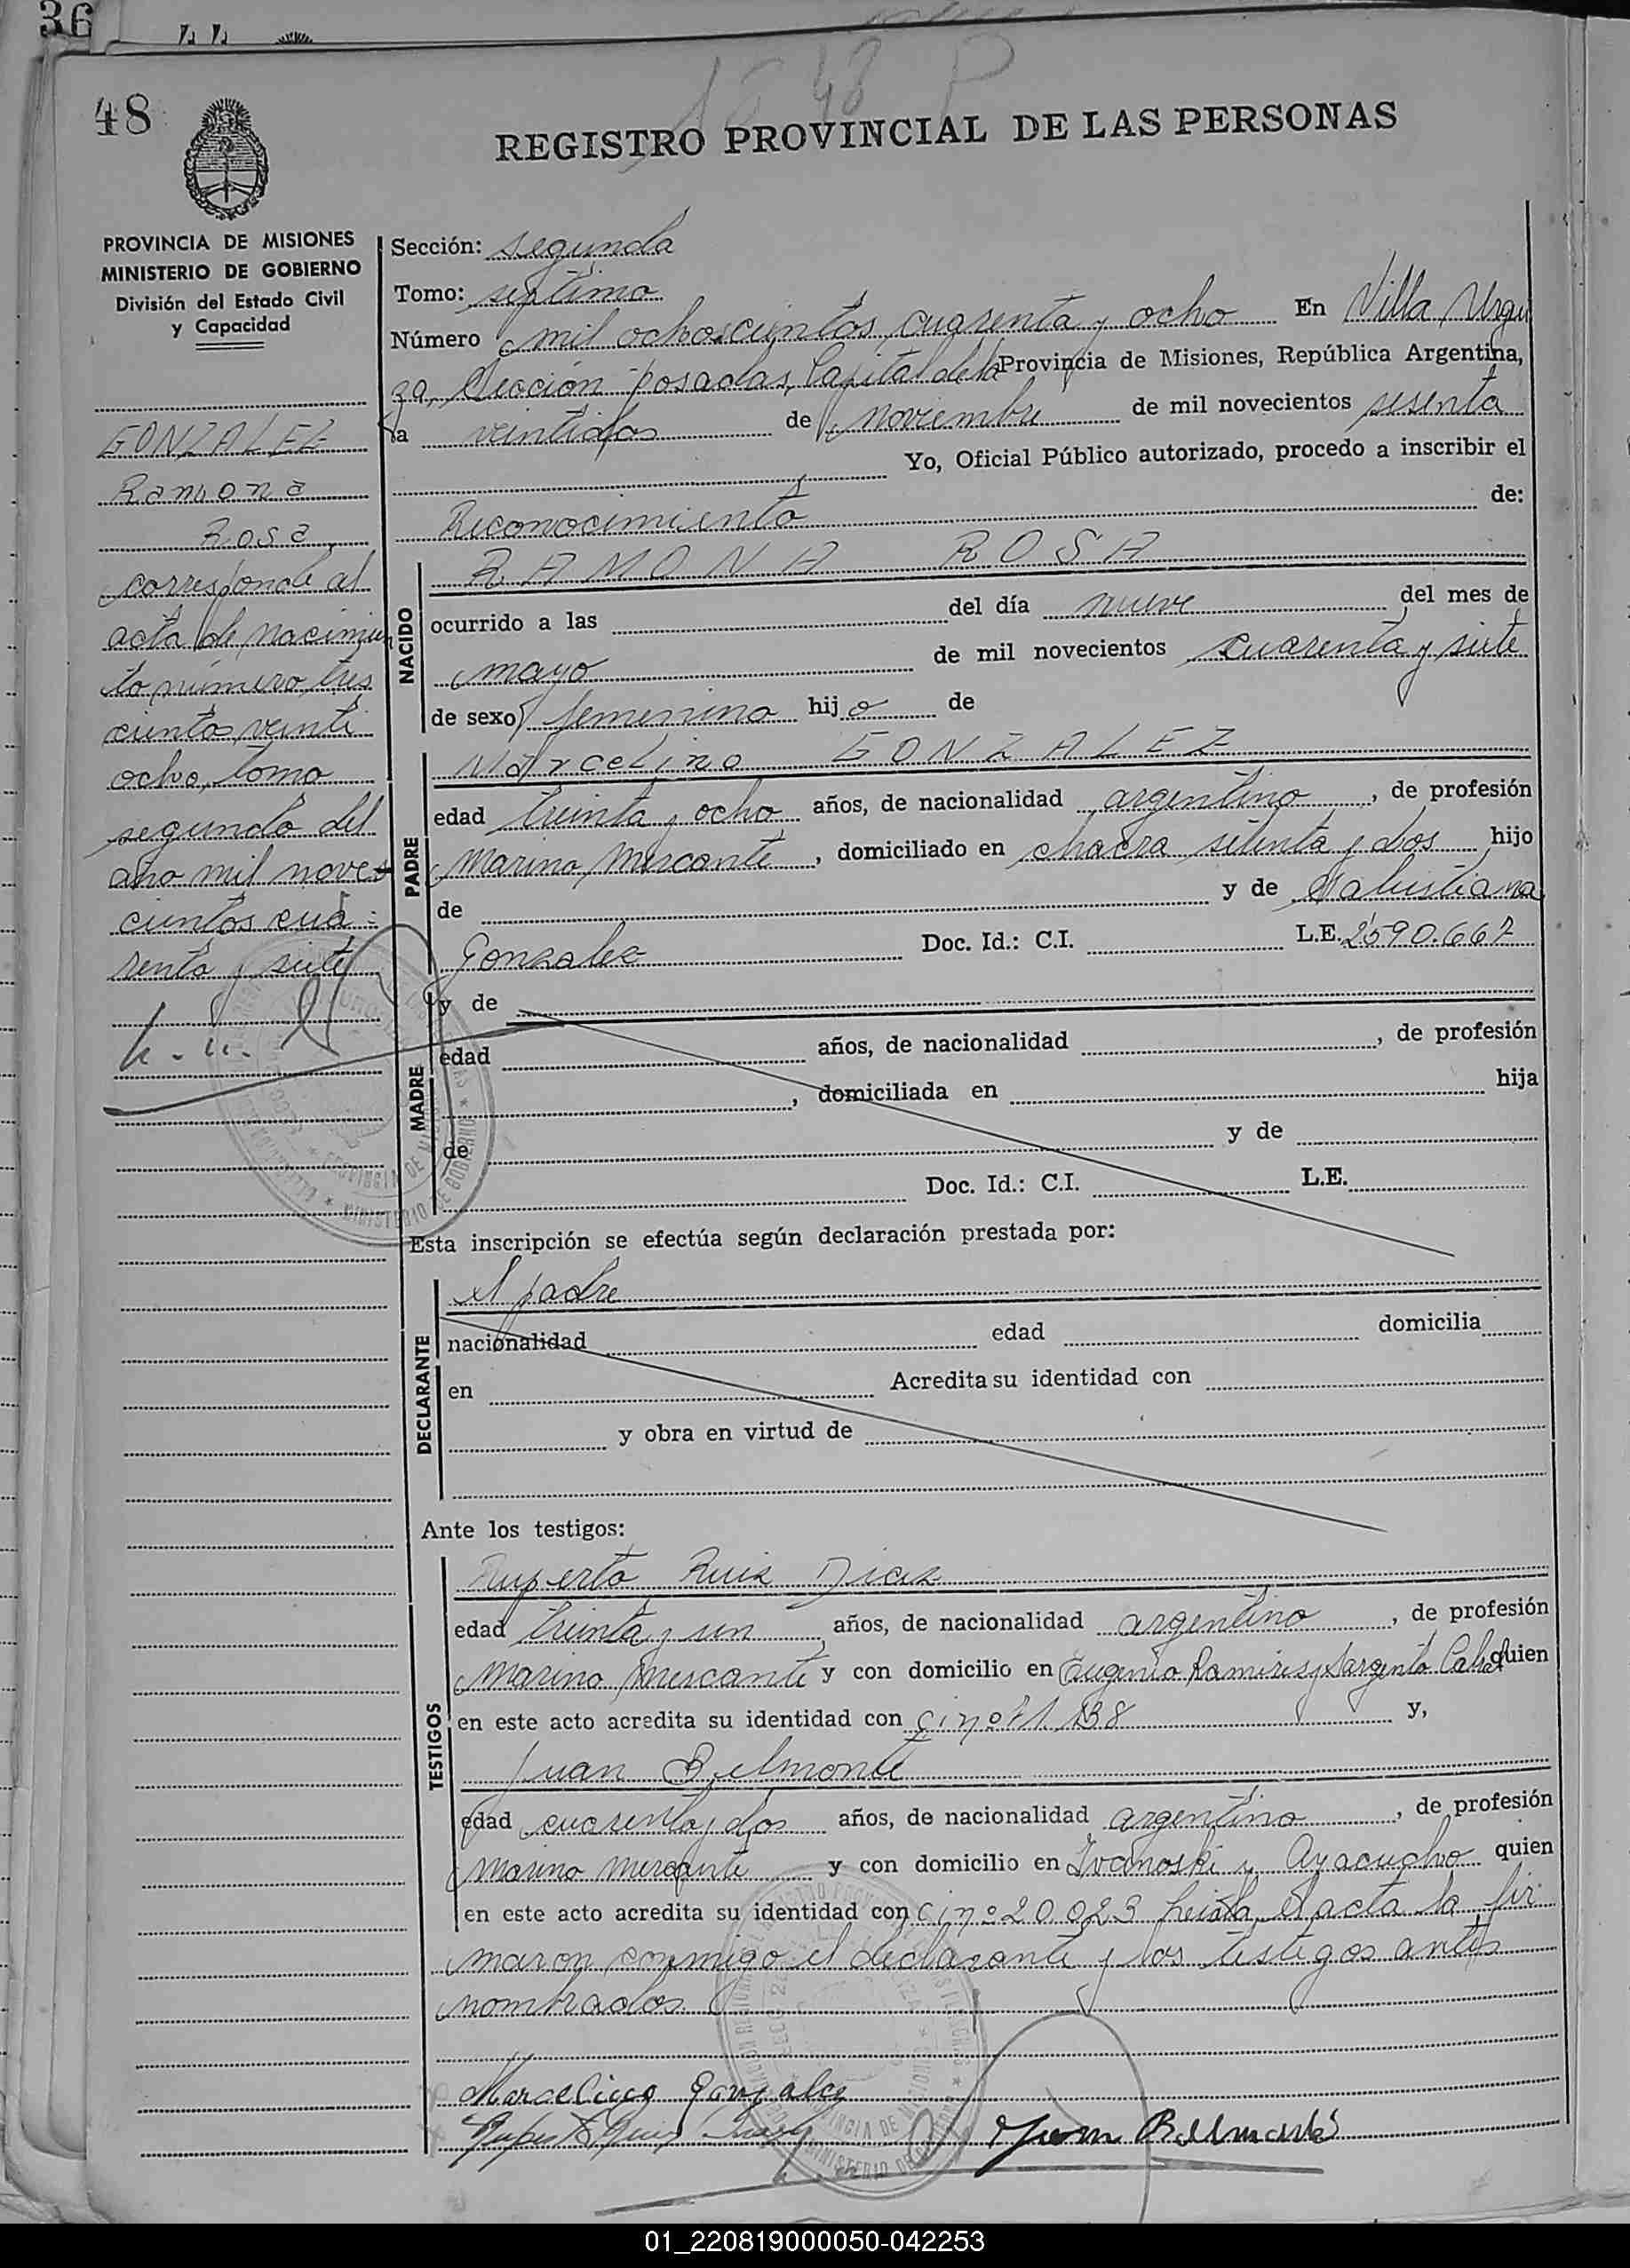 36
48
REGISTRO PROVINCIAL DE LAS PERSONAS
PROVINCIA DE MISIONES
MINISTERIO DE GOBIERNO
División del Estado Civil
y Capacidad
GONZALEZ
Ramona
Rosa
corresponde al
acta de nacimien
to número tres
cientos veinti
ocho, tomo
segundo del
año mil nove-
cientos cua-
renta y siete
Sección: segunda
Tomo: septimo
Número mil ochoscientos cuarenta y ocho En Villa Urqui
za, Sección Posadas, Capital de la Provincia de Misiones, República Argentina,
a veintidos de noviembre de mil novecientos sesenta
Yo, Oficial Público autorizado, procedo a inscribir el
Reconocimiento de:
NACIDO
RAMONA ROSA
ocurrido a las del día nueve del mes de
mayo de mil novecientos cuarenta y siete
de sexo femenino hijo de
PADRE
Marcelino GONZALEZ
edad treinta y ocho años, de nacionalidad argentino, de profesión
Marino mercante, domiciliado en chacra setenta y dos hijo
de y de Salustiana
Gonzalez Doc. Id.: C.I. L.E. 2590.667
MADRE
y de
edad años, de nacionalidad , de profesión
, domiciliada en hija
de y de
Doc. Id.: C.I. L.E.
Esta inscripción se efectúa según declaración prestada por:
DECLARANTE
el padre
nacionalidad edad domicilia
en Acredita su identidad con
y obra en virtud de
Ante los testigos:
TESTIGOS
Ruperto Ruiz Diaz
edad treinta y un años, de nacionalidad argentino, de profesión
Marino mercante y con domicilio en Eugenio Ramires y Sargento Cabral quien
en este acto acredita su identidad con C.I nº 71.138 y,
Juan Belmonte
edad cuarenta y dos años, de nacionalidad argentino, de profesión
Marino mercante y con domicilio en Ivanoski y Ayacucho quien
en este acto acredita su identidad con C.I nº 20.023 leida el acta la fir
maron conmigo el declarante y los testigos antes
nombrados
Marcelino Gonzalez
Juan Belmonte
01_220819000050-042253